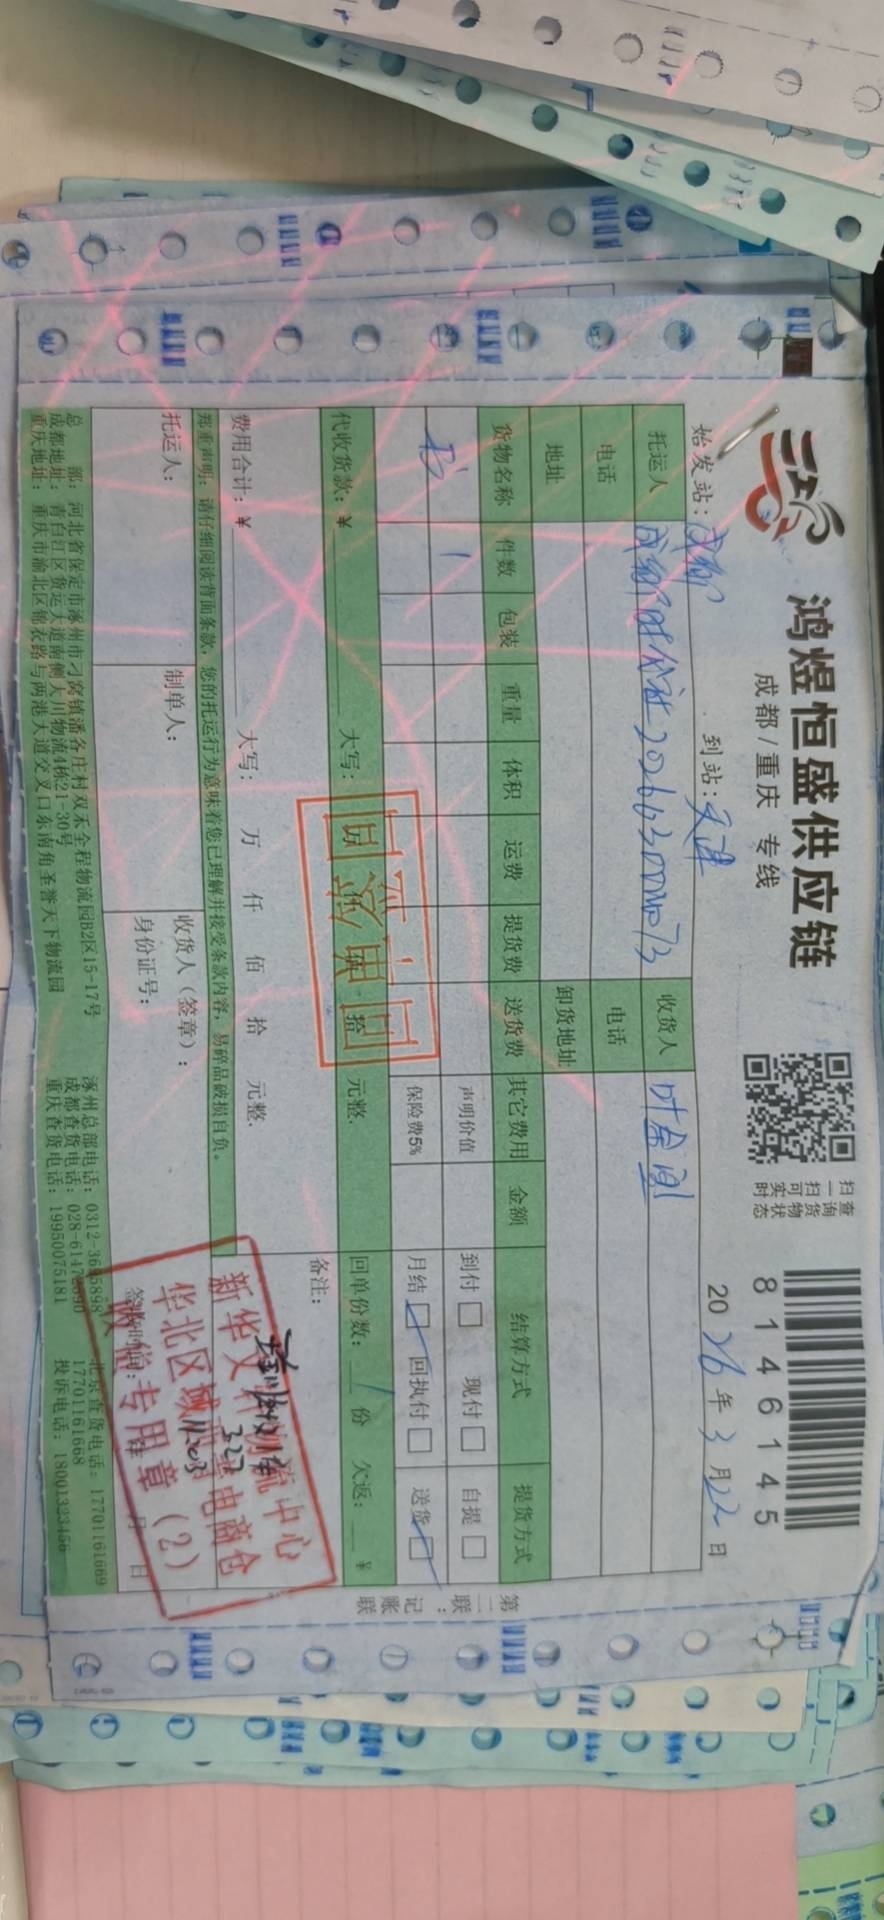 鸿煜恒盛供应链
成都/重庆 专线
扫一扫查询可实时货物状态
8146145
始发站：成都
到站：天津
2026年3月22日
托运人
收货人
叶金国
电话
电话
地址
卸货地址
货物名称 件数 包装 重量 体积 运费 提货费 送货费 其它费用 金额 结算方式 提货方式
书 1
声明价值
到付□ 现付□ 自提□
保险费5%
月结□ 回执付□ 送货□
代收货款：¥ 大写： 万 仟 佰 拾 元整.
回单份数：1份 欠返：¥
费用合计：¥ 大写： 万 仟 佰 拾 元整.
备注：
郑重声明：请仔细阅读背面条款，您的托运行为意味着您已理解并接受条款内容，易碎品破损自负。
托运人：
制单人：
收货人（签章）：
身份证号：
签收时间： 月 日
总 部：河北省保定市涿州市刁窝镇潘各庄村双禾全程物流园B2区15-17号
成都地址：青白江区货运大道南侧大川物流4栋21-30号
重庆地址：重庆市渝北区锦衣路与两港大道交叉口东南角圣誉天下物流园
成都查货电话：
重庆查货电话：19950075181
涿州总部电话：
北京查货电话：17701161669
17701161668
投诉电话：18001323456
华北区域
电商仓
专用章（2）
第二联：记账联